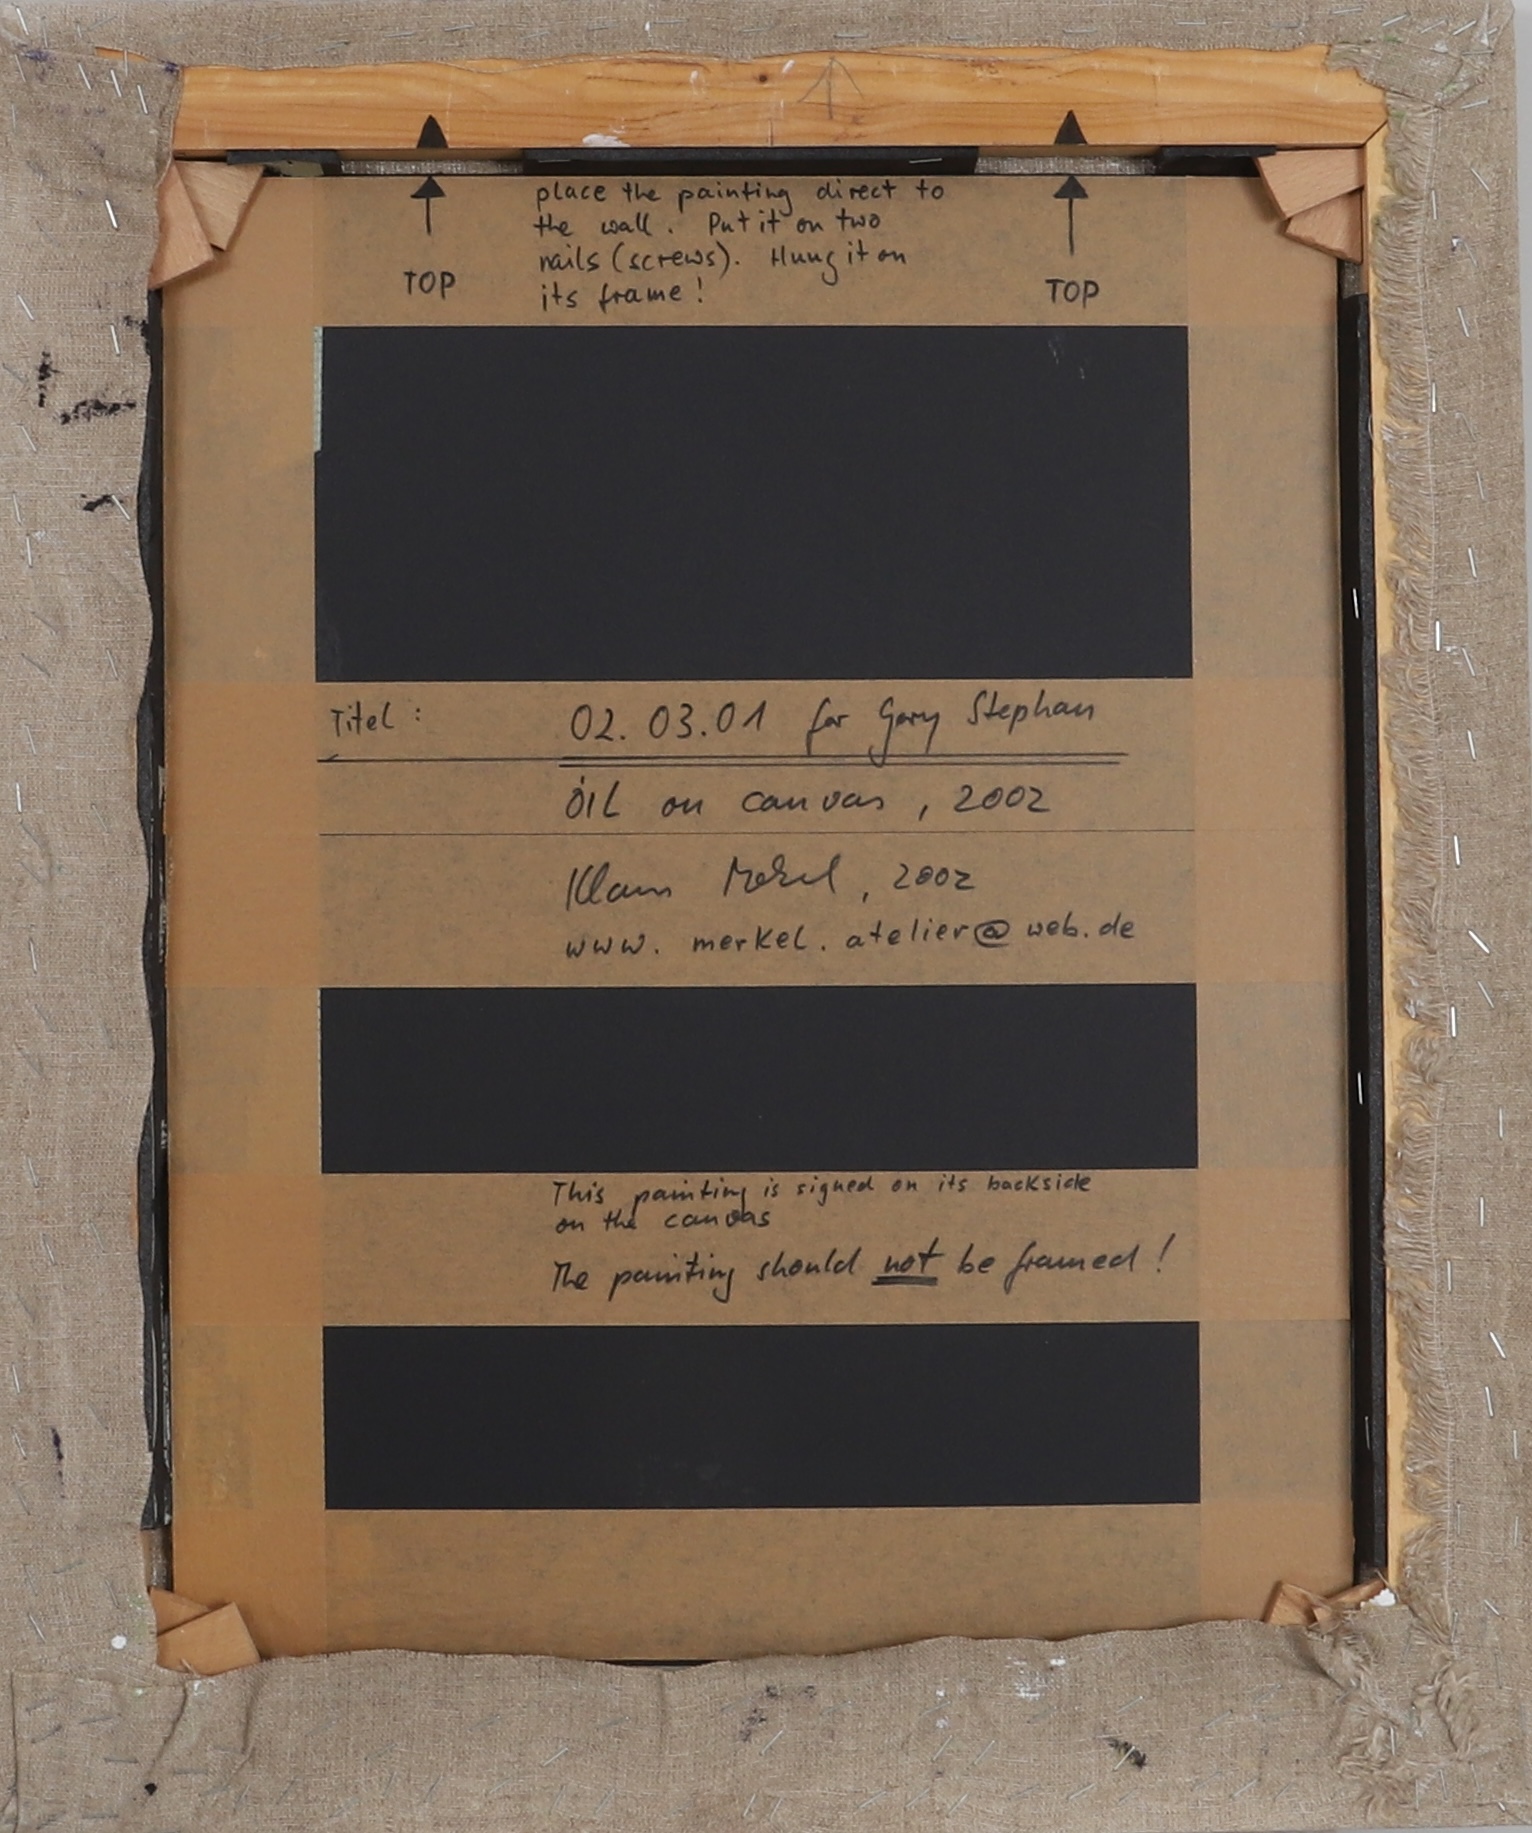 place the painting direct to
the wall. Put it on two
nails (screws). Hung it on
its frame!
TOP
TOP
Titel: 02.03.01 for Gary Stephan
ÖIL on canvas, 2002
Klaus Merkel, 2002
www. merkel. atelier@web.de
This painting is signed on its backside
on the canvas
The painting should not be framed!